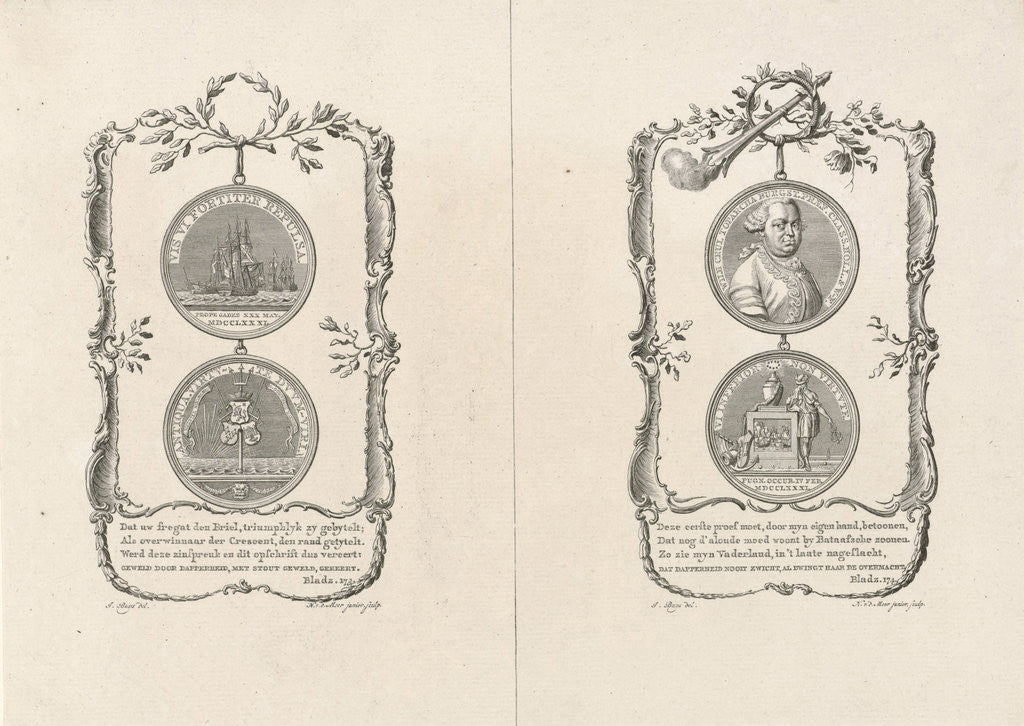 VIS VI FORTITER REPULSA
PROPE GADES XXX MAY.
MDCCLXXXI.
ANTIQUA VIRTUTE DUUMVIRI.
Dat uw fregat den Briel, triumphlyk zy gebytelt;
Als overwinnaar der Crescent, den rand getytelt.
Werd deze zinspreuk en dit opschrift dus vereert:
GEWELD DOOR DAPPERHEID, MET STOUT GEWELD, GEKEERT.
Bladz. 173.
J. Buys del.
N. v. d. Meer junior, sculp.
WILH. CRUL
BURGST. PRAEF. CLASS. HOLL.
VI INFERIOR NON VIRTUTE
PUGN. OCCUB. IV FEB.
MDCCLXXXI.
Deze eerste proef moet, door myn eigen hand, betoonen,
Dat nog d'aloude moed woont by Bataafsche zoonen.
Zo zie myn Vaderland, in 't laate nageslacht,
DAT DAPPERHEID NOOIT ZWICHT, AL DWINGT HAAR DE OVERMACHT.
Bladz. 174.
J. Buys del.
N. v. d. Meer junior, sculp.